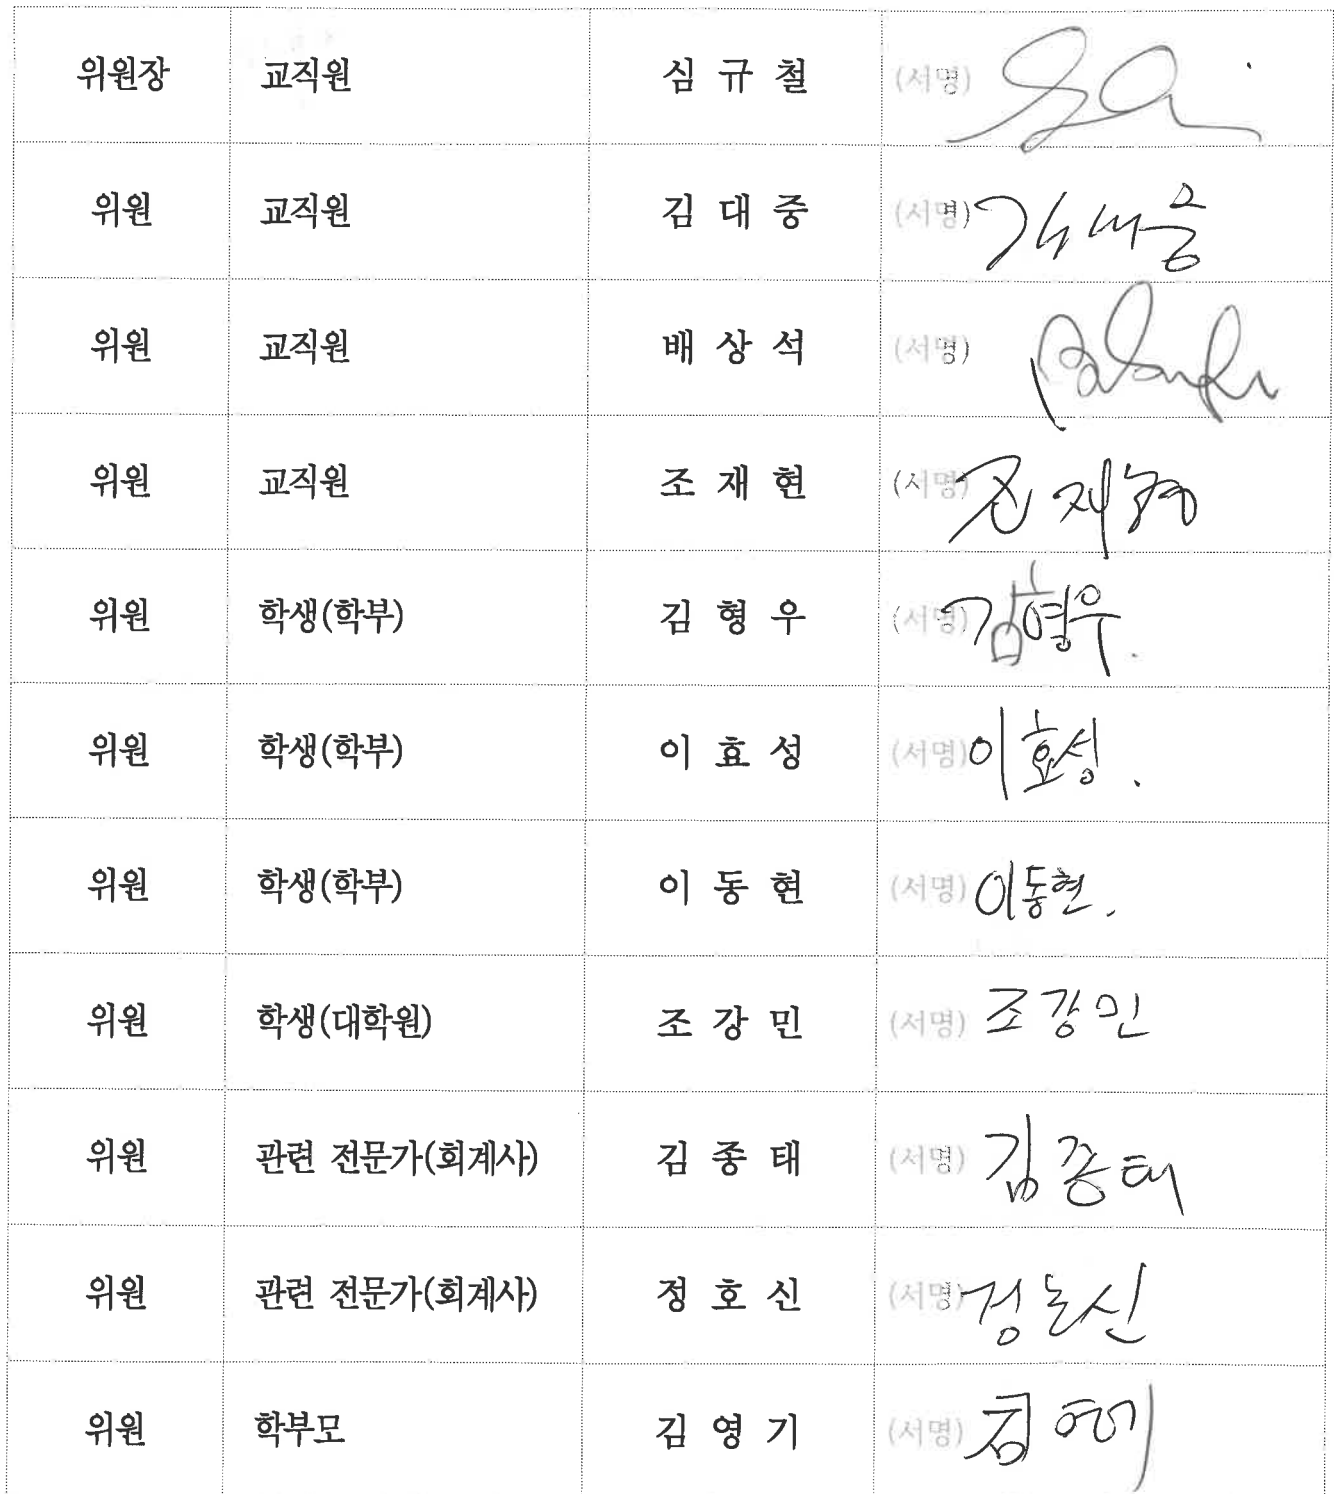 위원장 교직원 심 규 철 (서명)
위원 교직원 김 대 중 (서명) 김대중
위원 교직원 배 상 석 (서명)
위원 교직원 조 재 현 (서명) 조재현
위원 학생(학부) 김 형 우 (서명) 김형우.
위원 학생(학부) 이 효 성 (서명) 이효성.
위원 학생(학부) 이 동 현 (서명) 이동현.
위원 학생(대학원) 조 강 민 (서명) 조강민
위원 관련 전문가(회계사) 김 종 태 (서명) 김종태
위원 관련 전문가(회계사) 정 호 신 (서명) 정호신
위원 학부모 김 영 기 (서명)